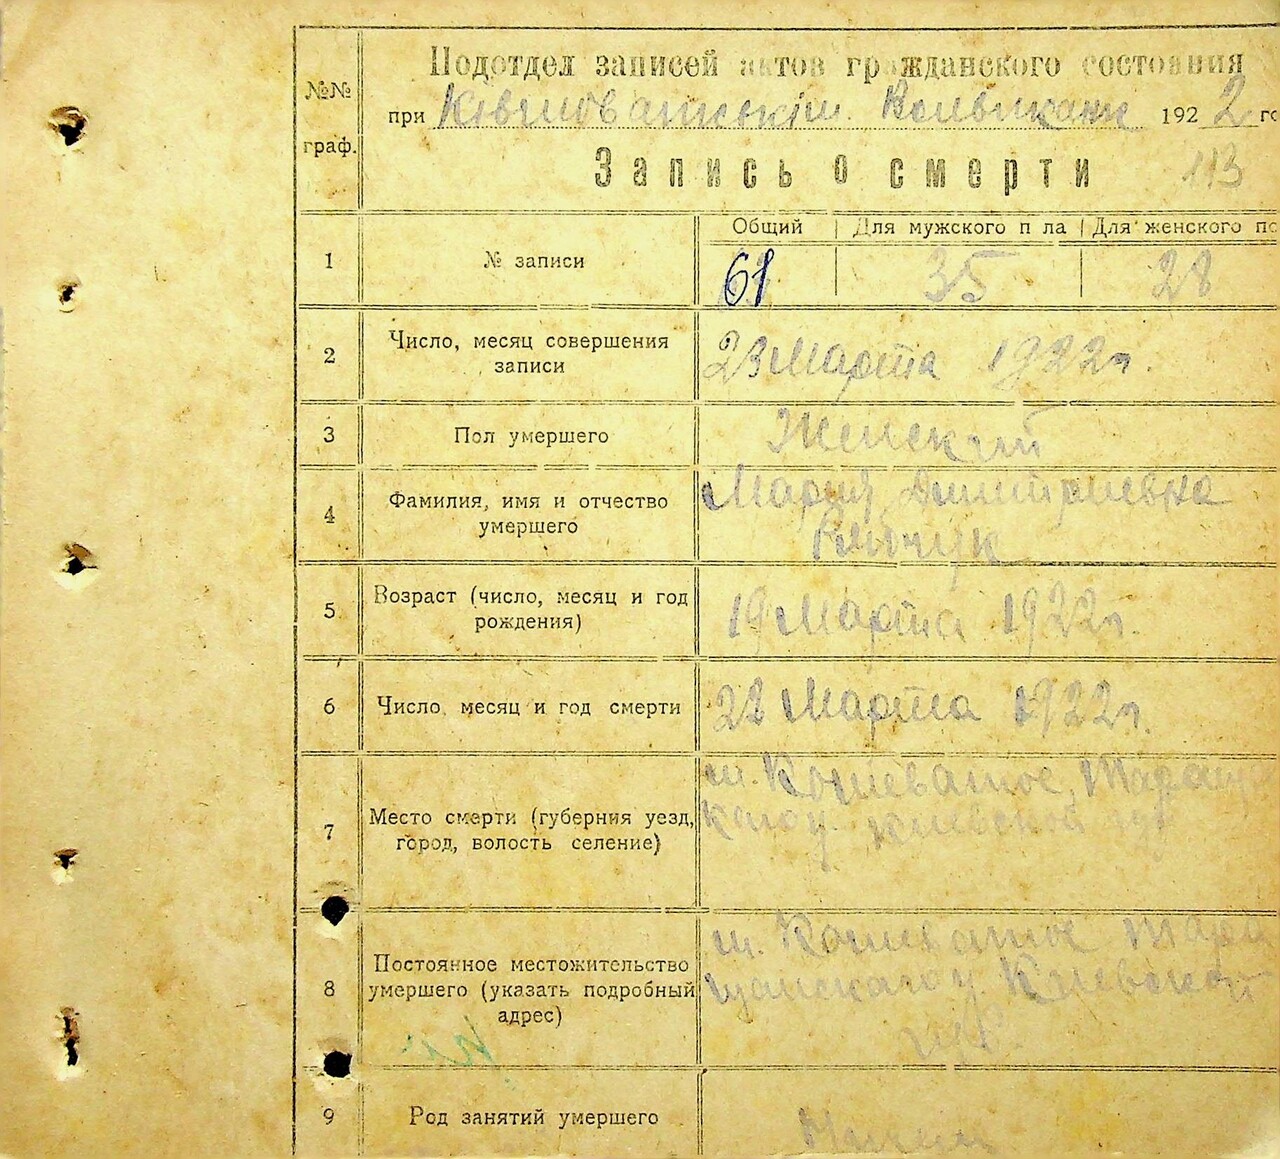 №№
граф.
Подотдел записей актов гражданского состояния
при 1922 го
Запись о смерти 113
Общий Для мужского п ла Для женского по
1 № записи 61 35 28
2 Число, месяц совершения
записи
23 Марта 1922 г.
3 Пол умершего Женский
4 Фамилия, имя и отчество
умершего
Мария Димитриевна
5 Возраст (число, месяц и год
рождения)
19 Марта 1922 г.
6 Число, месяц и год смерти 22 Марта 1922 г.
7 Место смерти (губерния уезд,
город, волость селение)
м. Кошеватое, Таращ
каго у. Киевской губ
8 Постоянное местожительство
умершего (указать подробный
адрес)
м. Кошеватое Тара
щанскаго у. Киевской
губ.
9 Род занятий умершего